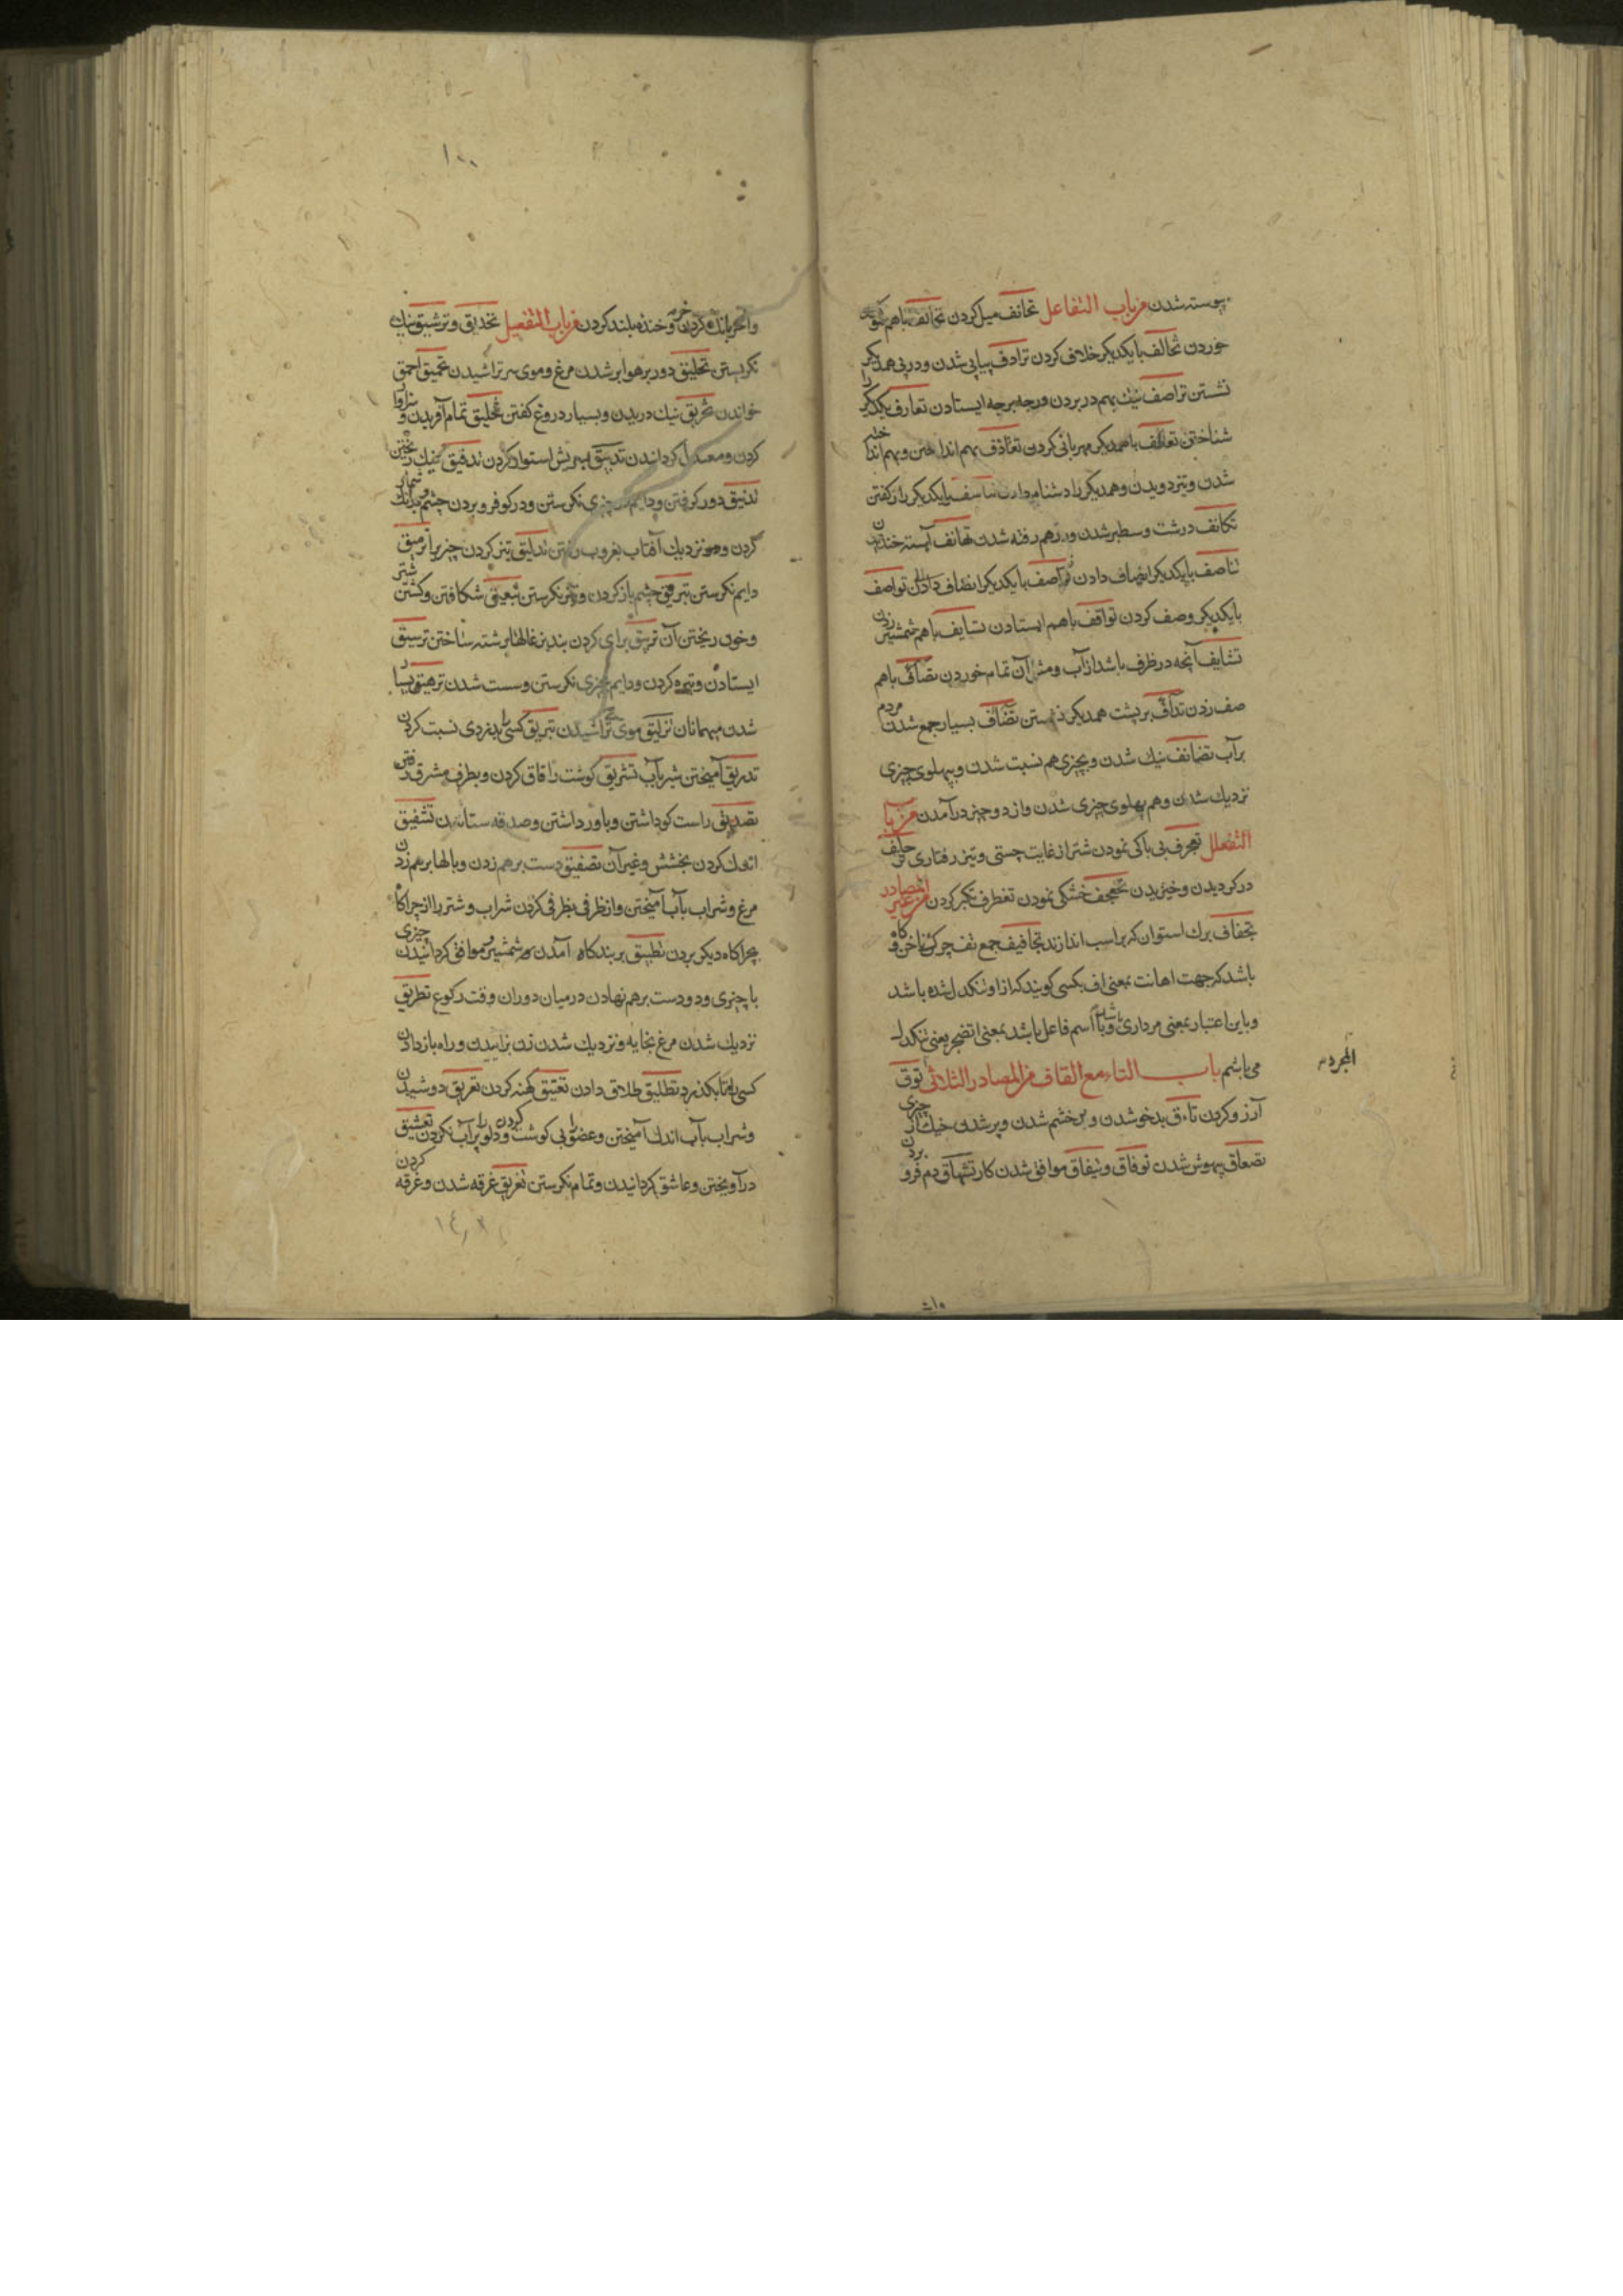 پیوسته شدن من باب التفاعل تحانف میل کردن تحالف باهم سوکند
خوردن تخالف بایکدیکر خلاف کردن ترادف پیاپی شدن ودرپی همدیکر
نشستن تراصف نیك بهم دربردن ودرجه برجه ایستادن تعارف یکدیکر را
شناختن تعاطف باهمدیکر مهربانی کردن تقاذف بهم انداختن وبهم انداخته
شدن وتیز دویدن وهمدیکر را دشنام دادن بایکدیکر راز کفتن
تکاثف درشت وسطبر شدن ودرهم رفته شدن تهانف آهسته خندیدن
تناصف بایکدیکر انصاف دادن بایکدیکر انصاف دادن تواصف
بایکدیکر وصف کردن تواقف باهم ایستادن تسایف باهم شمشیر زدن
تشافف آنچه درظرف باشد ازآب ومثل آن تمام خوردن تصافّ باهم
صف زدن تدافّ برپشت همدیکر نشستن تضافّ بسیار جمع شدن مردم
برآب تضایف نیك شدن وبچیزی هم نسبت شدن وپهلوی چیزی
نزدیك شدن وهم پهلوی چیزی شدن واز دو چیز درآمدن من باب
التفعلل تعجرف بی باکی نمودن شتر از غایت چستی وتیز رفتاری
درکردیدن وخیزیدن تجفجف خشکی نمودن تغطرف تکبر کردن من غیر المصادر
تجفاف برك استوان که براسب اندازند تجافیف جمع تف چرك ناخن وکاه
باشد که جهت اهانت بمعنی اف بکسی کویند که ازاو تنکدل شده باشد
وباین اعتبار بمعنی مرداری باشد ویا اسم فاعل باشد بمعنی اتضجر یعنی تنکدل
می باشم باب التاء مع القاف من المصادر الثلاثی المجرده توق
آرزو کردن تاءق بدخو شدن وپر خشم شدن وپر شدن خیك از چیزی
تصعاق بیهوش شدن توفاق وتیفاق موافق شدن کار تشهاق دم فرو بردن
وآخر بانك کردن خر وخنده بلند کردن من باب التفعیل تحدیق وترشیق نیك
نکریستن تحلیق دور برهوا بر شدن مرغ وموی سر تراشیدن تحمیق احمق
خواندن تخریق نیك دریدن وبسیار دروغ کفتن تخلیق تمام آفریدن و
کردن ومعتدل کردانیدن تدبیق بسریش استوار کردن تدقیق نیك ریختن
تدنیق دور کرفتن ودایم در چیزی نکرستن ودرکو فرو بردن چشم
کردن ونزدیك آفتاب بغروب رفتن تذلیق تیز کردن چیزیرا ترمیق
دایم نکرستن تبریق چشم باز کردن وتیز نکرستن تبعیق شکافتن وکشتن شتر
وخون ریختن آن تربیق برای کردن بند بزغالها برشته ساختن ترنیق
ایستادن وتیره کردن ودایم بچیزی نکرستن وسست شدن ترهیق بسیار
شدن میهمانان تزلیق موی تراشیدن تسریق کسی را بدزدی نسبت کردن
تذریق آمیختن شیر بآب تشریق کوشت را قاق کردن وبطرف مشرق رفتن
تصدیق راست کو داشتن وباور داشتن وصدقه ستانیدن تشفیق
اندك کردن بخشش وغیر آن تصفیق دست برهم زدن وبالها برهم زدن
مرغ وشراب بآب آمیختن واز ظرفی بظرفی کردن شراب وشتر را از چراکاه
بچراکاه دیکر بردن تطبیق بر بندکاه آمدن شمشیر وموافق کردانیدن چیزی
با چیزی ودو دست برهم نهادن درمیان دو ران وقت رکوع تطریق
نزدیك شدن مرغ بخایه ونزدیك شدن زن بزاییدن وراه باز دادن
کسی را تا بکذرد تطلیق طلاق دادن تعتیق کهنه کردن تعریق دوشیدن
وشراب بآب اندك آمیختن وعضو را بی کوشت کردن ودلو را پر آب نکردن تعشیق
درآویختن وعاشق کردانیدن وتمام نکرستن تغریق غرقه شدن وغرقه کردن